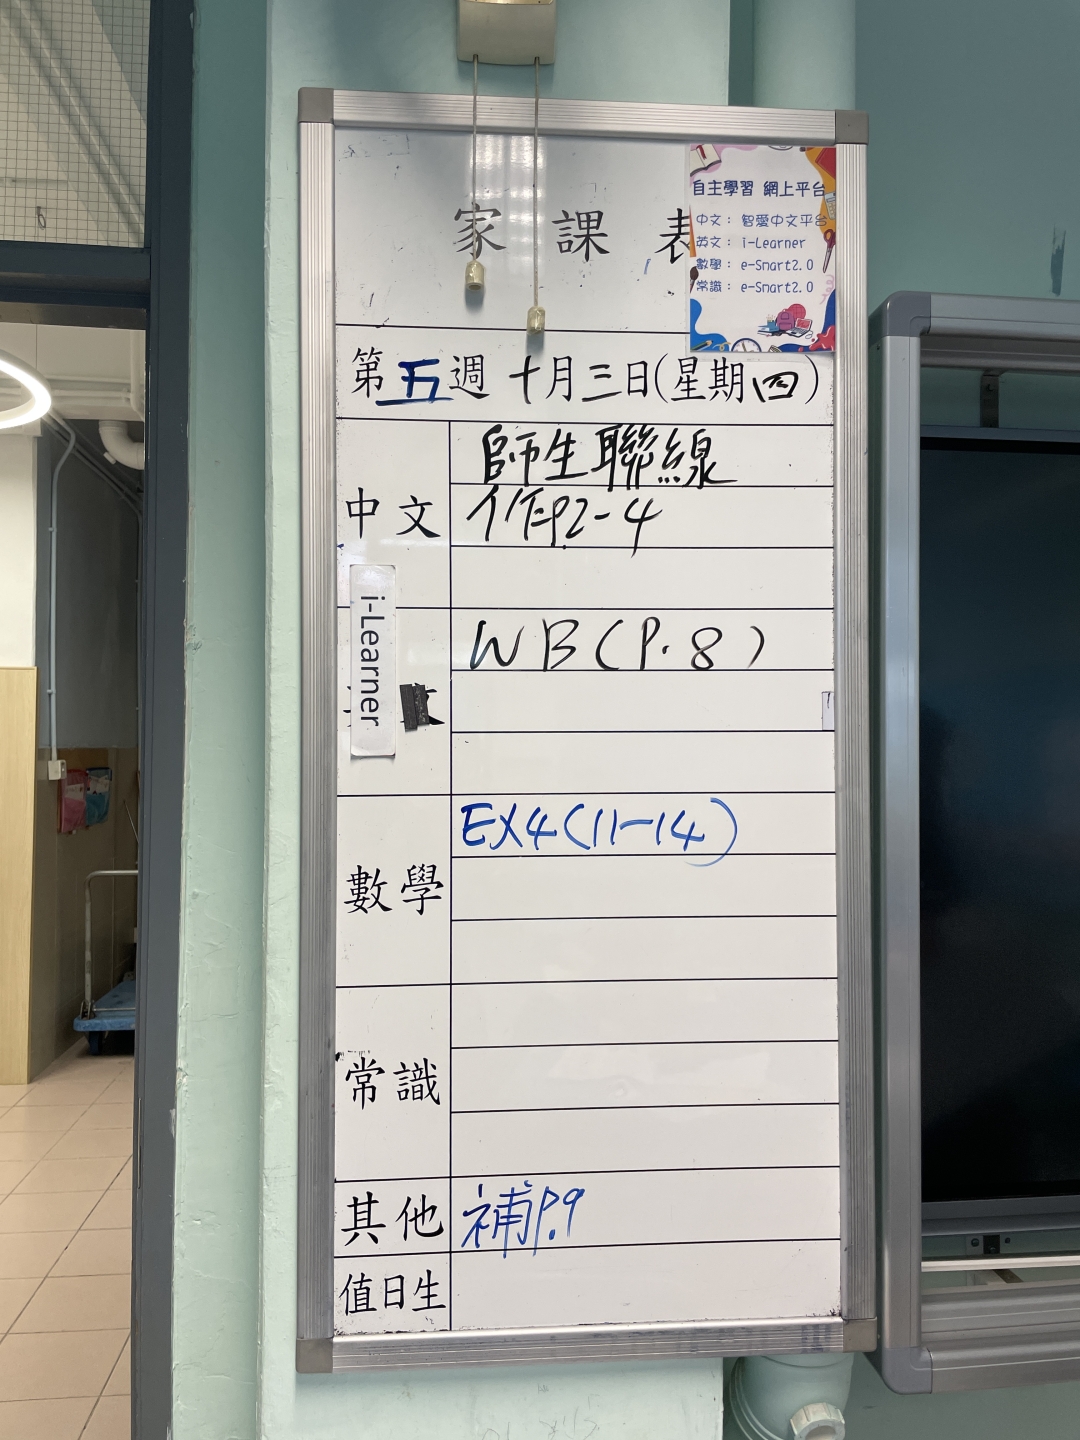 家課表
自主學習 網上平台
中文： 智愛中文平台
英文： i-Learner
數學： e-Smart2.0
常識： e-Smart2.0
第五週 十月三日(星期四)
中文
師生聯線
作P.2-4
i-Learner
文
WB(P.8)
數學
EX4(11-14)
常識
其他
補P.9
值日生